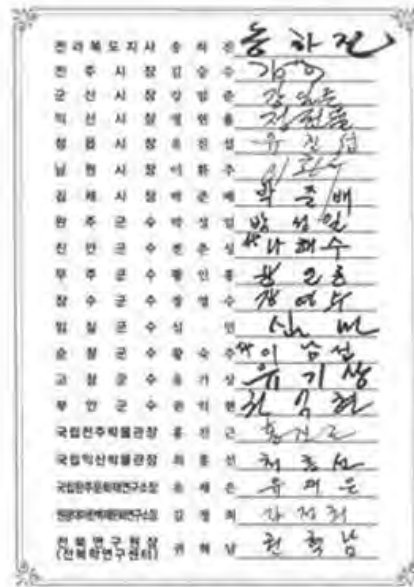 전라북도지사 송하진 송하진
전주시장 김승수
군산시장 강임준 강임준
익산시장 정헌율 정헌율
정읍시장 유진섭 유진섭
남원시장 이환주 이환주
김제시장 박준배 박준배
완주군수 박성일 박성일
진안군수 나해수
무주군수 황인홍 황인홍
장수군수 장영수 장영수
임실군수 심민 심민
순창군수 황숙주 이남섭
고창군수 유기상 유기상
부안군수 권익현 권익현
국립전주박물관장 홍진근 홍진근
국립익산박물관장 최흥선 최흥선
국립완주문화재연구소장 유재은 유재은
김정희
전북연구원장 권혁남 권혁남
(전북학연구센터)